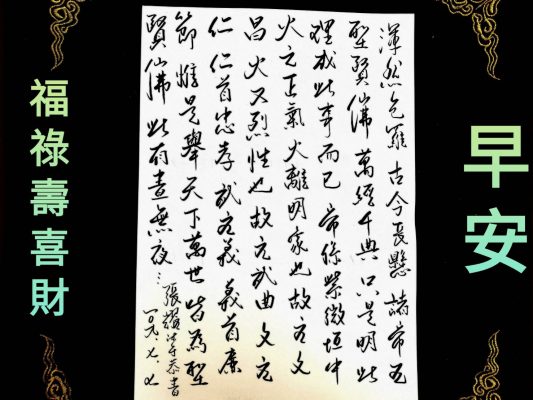 早安
渾然包羅古今長懸諸帝王
聖賢仙佛萬經千典只是明此
理成此事而已帝係紫微垣中
火之正氣火離明象也故為文
昌火又烈性也故為武曲文為
仁仁首忠孝武為義義首廉
節惟是舉天下萬世皆為聖
賢仙佛此有晝無夜…
張耀 恭書
一〇九.七.七
福祿壽喜財